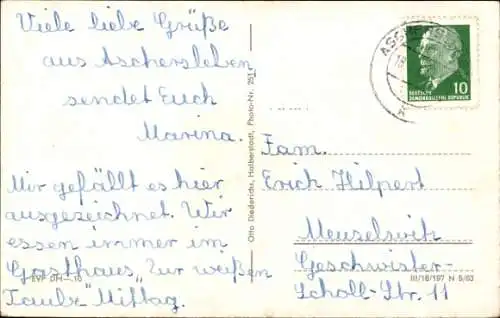 Viele liebe Grüße
aus Aschersleben
sendet Euch
Marina.
Mir gefällt es hier
ausgezeichnet. Wir
essen immer im
Gasthaus „Zur weißen
Taube" Mittag.
EVP DM -.10
Otto Diederichs, Halberstadt, Photo-Nr. 251
DEUTSCHE
DEMOKRATISCHE REPUBLIK
10
Fam.
Erich Hilpert
Meuselwitz
Geschwister-
Scholl-Str. 11
III/18/197 N 5/63